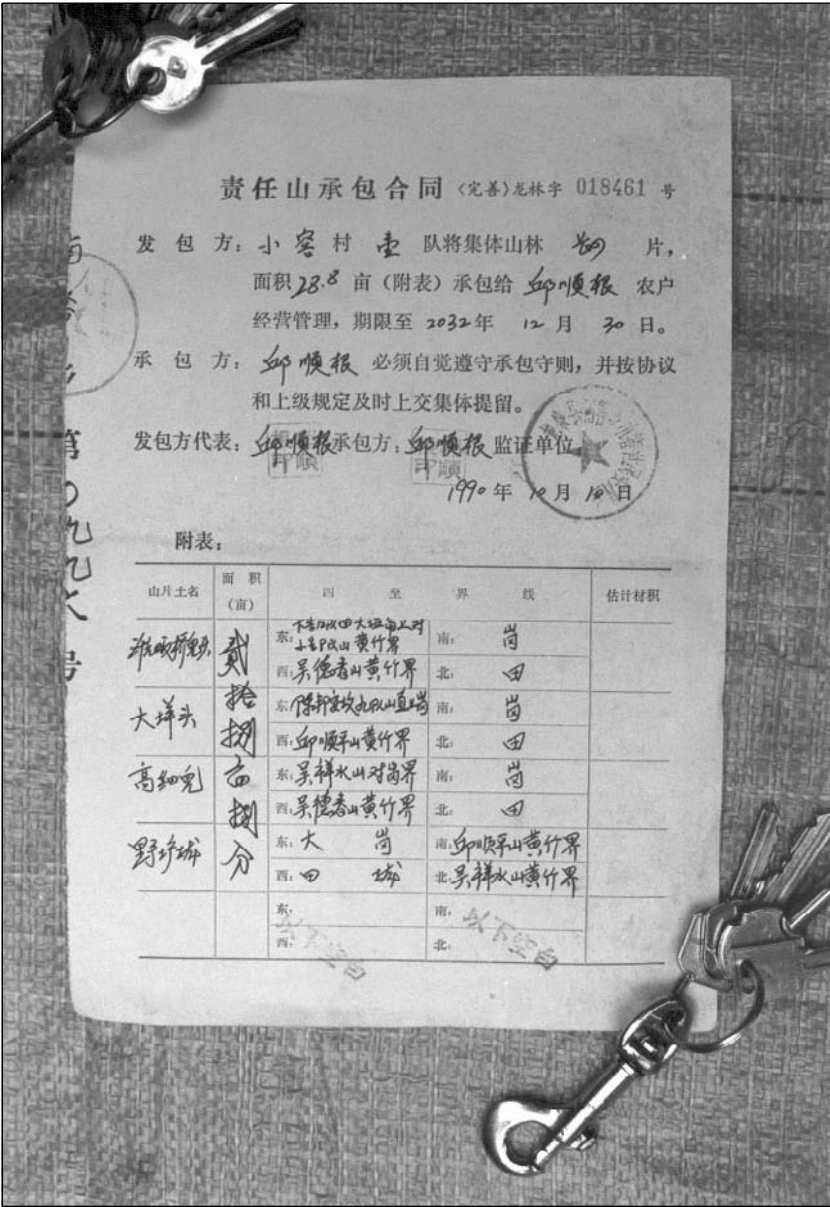 责任山承包合同〈完善〉龙林字 018461 号
发包方：小窖村 壹 队将集体山林 片，
面积28.8亩（附表）承包给 邱顺根 农户
经营管理，期限至 2032年 12月 30日。
承包方：邱顺根 必须自觉遵守承包守则，并按协议
和上级规定及时上交集体提留。
发包方代表：邱顺根 承包方：邱顺根 监证单位
1990年10月10日
第〇九九六号
附表：
山片土名 面积（亩） 四至界线 估计材积
贰拾捌亩捌分
东： 黄竹界 南：岗
西：吴德香山黄竹界 北：田
大垟头
东： 南：岗
西：邱顺平山黄竹界 北：田
东：吴祥水山对岗界 南：岗
西：吴德香山黄竹界 北：田
东：大岗 南：邱顺平山黄竹界
西：田 北：吴祥水山黄竹界
东： 南：
西： 北：
以下空白 以下空白